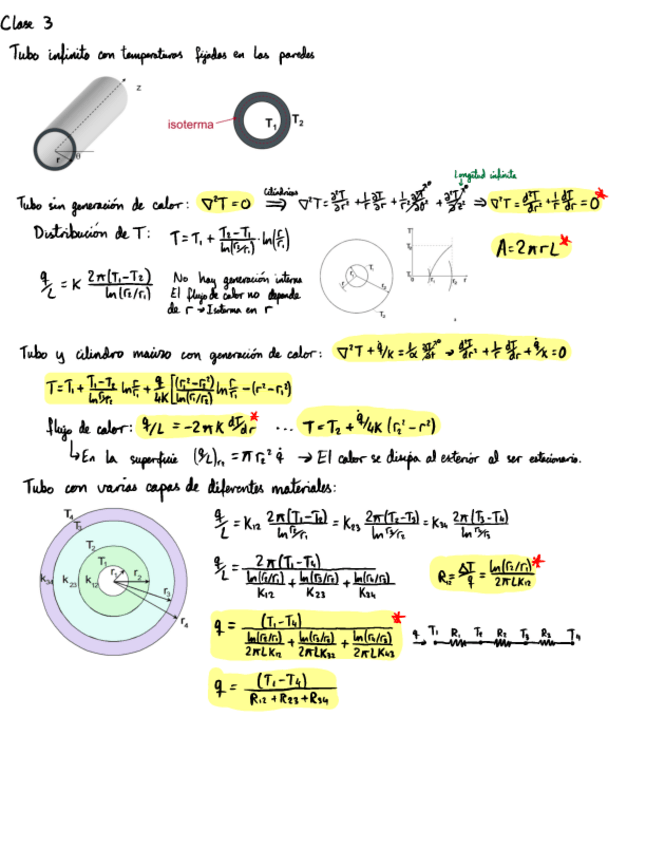 Clase 3
Tubo infinito con temperaturas fijadas en las paredes
z
isoterma
T₁ T₂
r θ
Longitud infinita
Tubo sin generación de calor: ∇²T=0 ⟹ (cilíndricas) ∇²T = ∂²T/∂r² + 1/r ∂T/∂r + 1/r² ∂²T/∂θ²^0 + ∂²T/∂z²^0 ⟹ ∇²T = d²T/dr² + 1/r dT/dr = 0 *
Distribución de T: T = T₁ + (T₂-T₁)/ln(r₂/r₁) · ln(r/r₁)
A = 2πrL *
q/L = K 2π(T₁-T₂)/ln(r₂/r₁)
No hay generación interna
El flujo de calor no depende
de r → Isoterma en r
Tubo y cilindro macizo con generación de calor: ∇²T + q̇/K = 1/α ∂T/∂t^0 → d²T/dr² + 1/r dT/dr + q̇/K = 0
T = T₁ + (T₁-T₂)/ln(r₁/r₂) ln r/r₁ + q̇/4K [(r₂²-r₁²)/ln(r₂/r₁) ln r/r₁ - (r²-r₁²)]
flujo de calor: q/L = -2πrK dT/dr * ... T = T₂ + q̇/4K (r₂²-r²)
↳ En la superficie (q/L)r₂ = π r₂² q̇ → El calor se disipa al exterior al ser estacionario.
Tubo con varias capas de diferentes materiales:
T₄
T₃
T₂
T₁
r₁ r₂
K₃₄ K₂₃ K₁₂
r₃
r₄
q/L = K₁₂ 2π(T₁-T₂)/ln r₂/r₁ = K₂₃ 2π(T₂-T₃)/ln r₃/r₂ = K₃₄ 2π(T₃-T₄)/ln r₄/r₃
q/L = 2π(T₁-T₄) / (ln(r₂/r₁)/K₁₂ + ln(r₃/r₂)/K₂₃ + ln(r₄/r₃)/K₃₄)
R₁₂ = ΔT/q = ln(r₂/r₁)/2πLK₁₂ *
q = (T₁-T₄) / (ln(r₂/r₁)/2πLK₁₂ + ln(r₃/r₂)/2πLK₃₂ + ln(r₄/r₃)/2πLK₄₃) *
q T₁ R₁ T₂ R₂ T₃ R₃ T₄
q = (T₁-T₄) / (R₁₂+R₂₃+R₃₄)